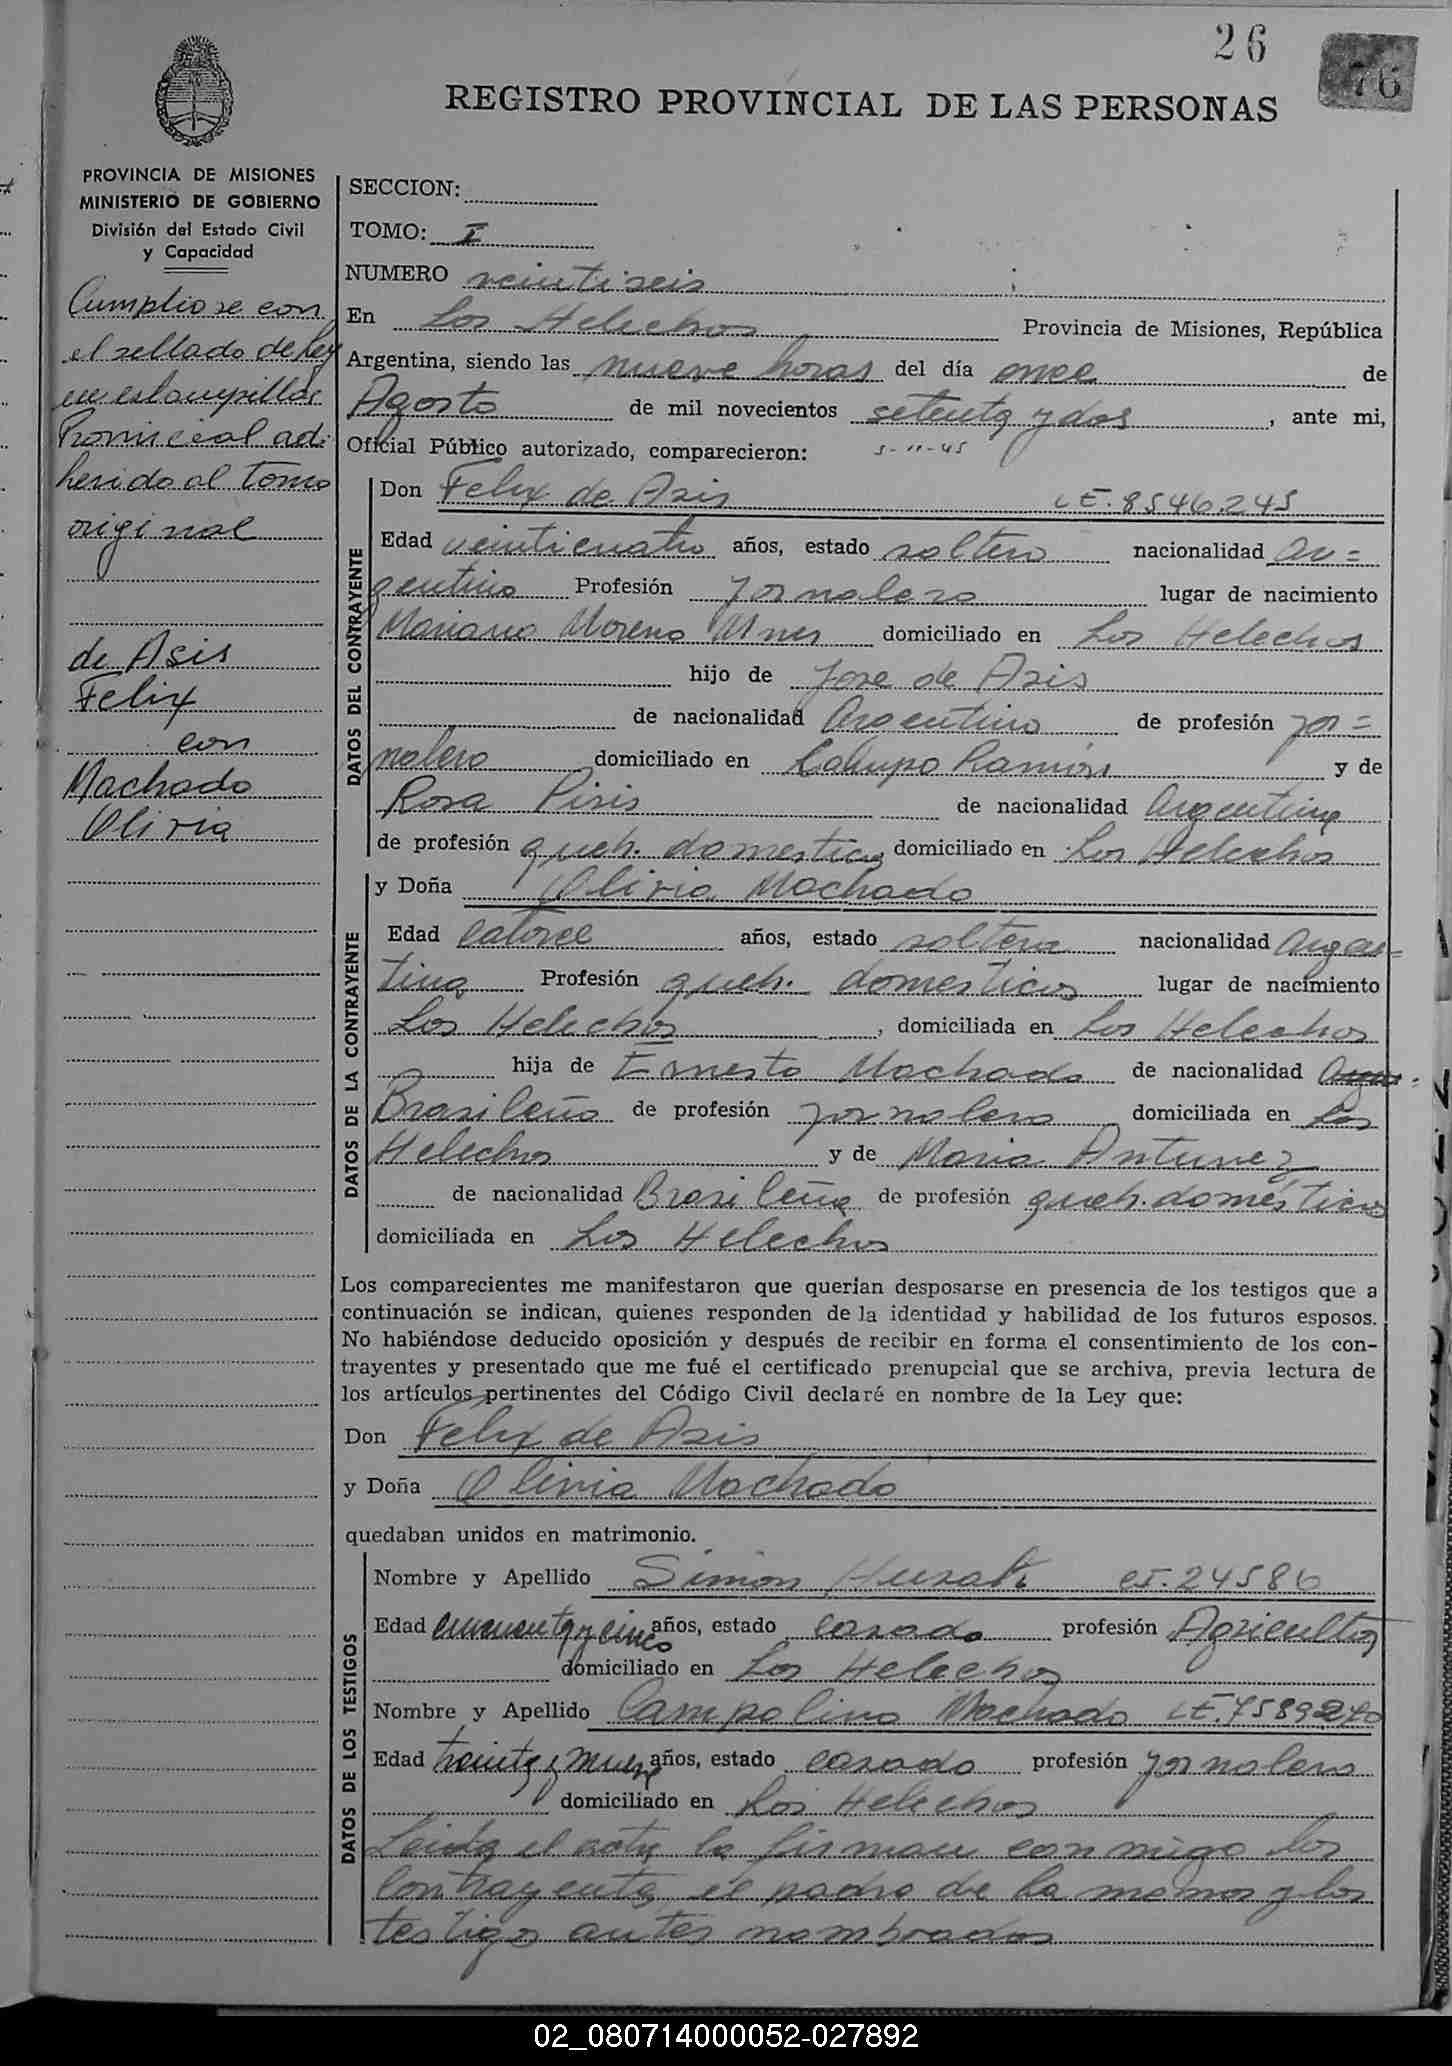 26
76
REGISTRO PROVINCIAL DE LAS PERSONAS
PROVINCIA DE MISIONES
MINISTERIO DE GOBIERNO
División del Estado Civil
y Capacidad
Cumpliose con
el sellado de Ley
en estampillas
Provincial ad
herido al tomo
original
de Asis
Felix
con
Machado
Oliria
SECCION:
TOMO: I
NUMERO veintiseis
En Los Helechos Provincia de Misiones, República
Argentina, siendo las nueve horas del día once de
Agosto de mil novecientos setenta y dos, ante mi,
Oficial Público autorizado, comparecieron: 5-11-45
DATOS DEL CONTRAYENTE
Don Felix de Asis LE. 8546.245
Edad veinticuatro años, estado soltero nacionalidad Ar=
gentino Profesión Jornalero lugar de nacimiento
Mariano Moreno Mnes domiciliado en Los Helechos
hijo de Jose de Asis
de nacionalidad Argentino de profesión jor=
nalero domiciliado en Campo Ramón y de
Rosa Piris de nacionalidad Argentina
de profesión queh. domesticos domiciliado en Los Helechos
DATOS DE LA CONTRAYENTE
y Doña Oliria Machado
Edad catorce años, estado soltera nacionalidad Argen=
tina Profesión queh. domesticos lugar de nacimiento
Los Helechos, domiciliada en Los Helechos
hija de Ernesto Machado de nacionalidad
Brasileña de profesión jornalero domiciliada en Los
Helechos y de Maria Antunez
de nacionalidad Brasileña de profesión queh. domésticos
domiciliada en Los Helechos
Los comparecientes me manifestaron que querían desposarse en presencia de los testigos que a
continuación se indican, quienes responden de la identidad y habilidad de los futuros esposos.
No habiéndose deducido oposición y después de recibir en forma el consentimiento de los con-
trayentes y presentado que me fué el certificado prenupcial que se archiva, previa lectura de
los artículos pertinentes del Código Civil declaré en nombre de la Ley que:
Don Felix de Asis
y Doña Oliria Machado
quedaban unidos en matrimonio.
DATOS DE LOS TESTIGOS
Nombre y Apellido Simon 24586
Edad cincuenta y cinco años, estado casado profesión Agricultor
domiciliado en Los Helechos
Nombre y Apellido Campolino Machado LE.
Edad treinta y nueve años, estado casado profesión jornalero
domiciliado en Los Helechos
Leida el acta la firman conmigo los
contrayentes el padre de la menor y los
testigos antes nombrados
02_080714000052-027892